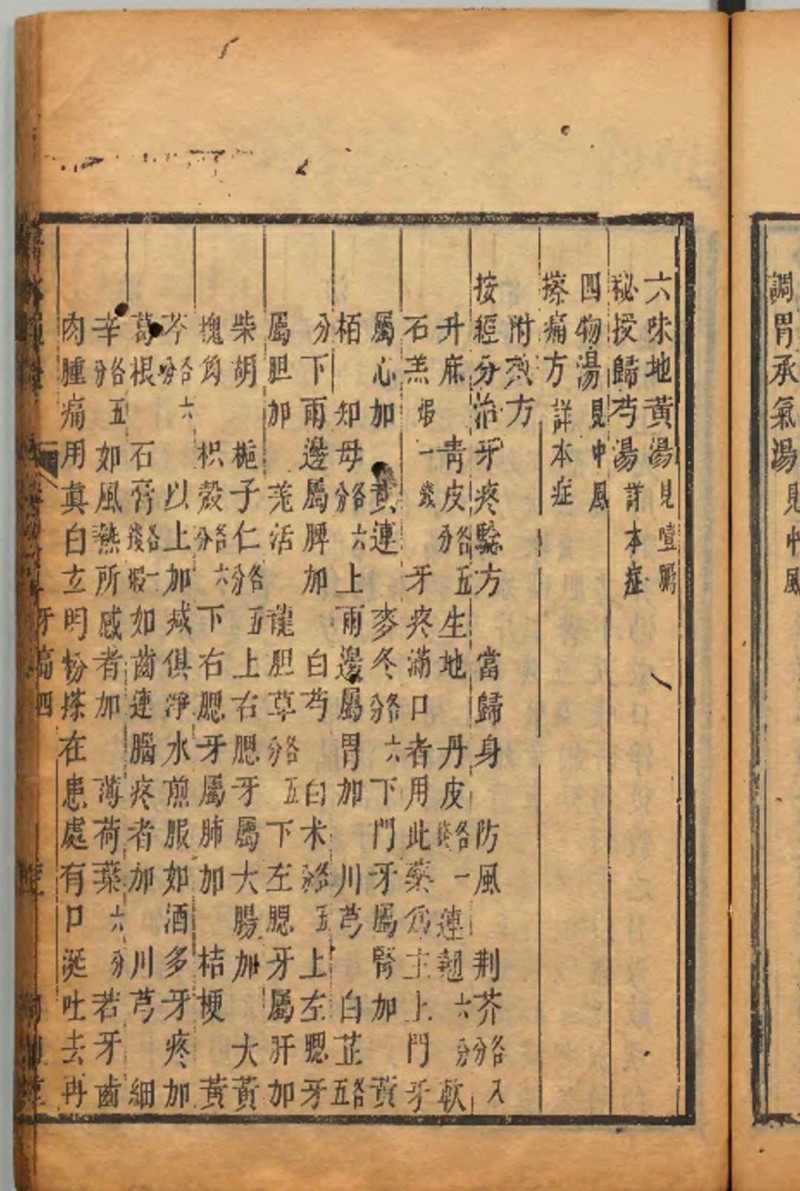 調胃承氣湯見中風
六味地黃湯見噎膈
秘授歸芍湯詳本症
四物湯見中風
擦痛方詳本症
附煎方
按經分治牙疼驗方 當歸身 防風 荆芥各八分
升麻 靑皮各五分 生地 丹皮各一錢 連翹六分 軟
石羔煅一錢 牙疼滿口者用此藥爲主上門牙
屬心加 黃連 麥冬各六分 下門牙屬腎加 黃
栢 知母各六分 上兩邊屬胃加 川芎 白芷各五
分 下兩邊屬脾加 白芍 白朮各五分 上左腮牙
屬胆加 羌活 龍胆草各五分 下左腮牙屬肝加
柴胡 梔子仁各五分 上右腮牙屬大腸加 大黃
槐角 枳殼各六分 下右腮牙屬肺加 桔梗 黃
芩各六分 以上加减俱淨水煎服如酒多牙疼加
葛根 石膏各煅一錢 如齒連腦疼者加 川芎 細
辛各五分 如風熱所感者加 薄荷葉六分 若牙齒
肉腫痛用眞白玄明粉搽在患處有口涎吐去再